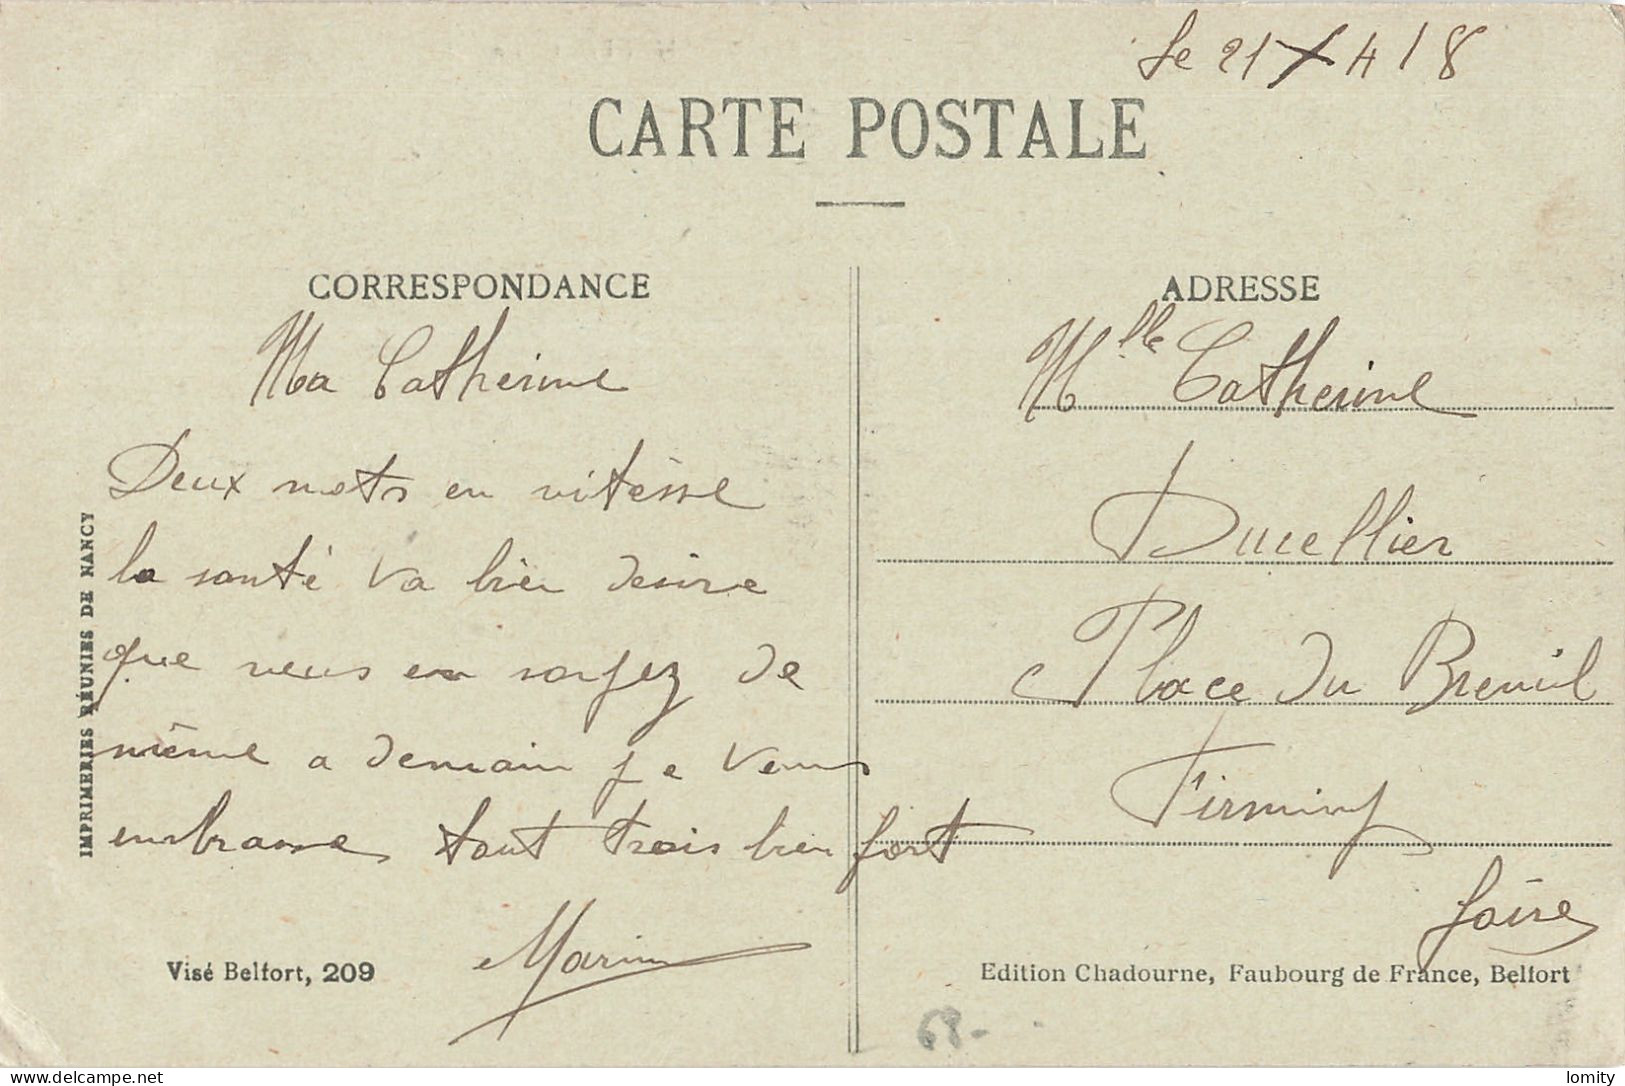 Le 21 X 4 18
CARTE POSTALE
CORRESPONDANCE
Ma Catherine
Deux mots en vitèsse
la santé va bien desire
que vous en soyez de
même a demain je vous
embrasse tout trois bien fort
Marin
Visé Belfort, 209
IMPRIMERIES RÉUNIES DE NANCY
ADRESSE
Mlle Catherine
Ducellier
Place du Breuil
Firminy
Loire
Edition Chadourne, Faubourg de France, Belfort
68-
delcampe.net
lomity